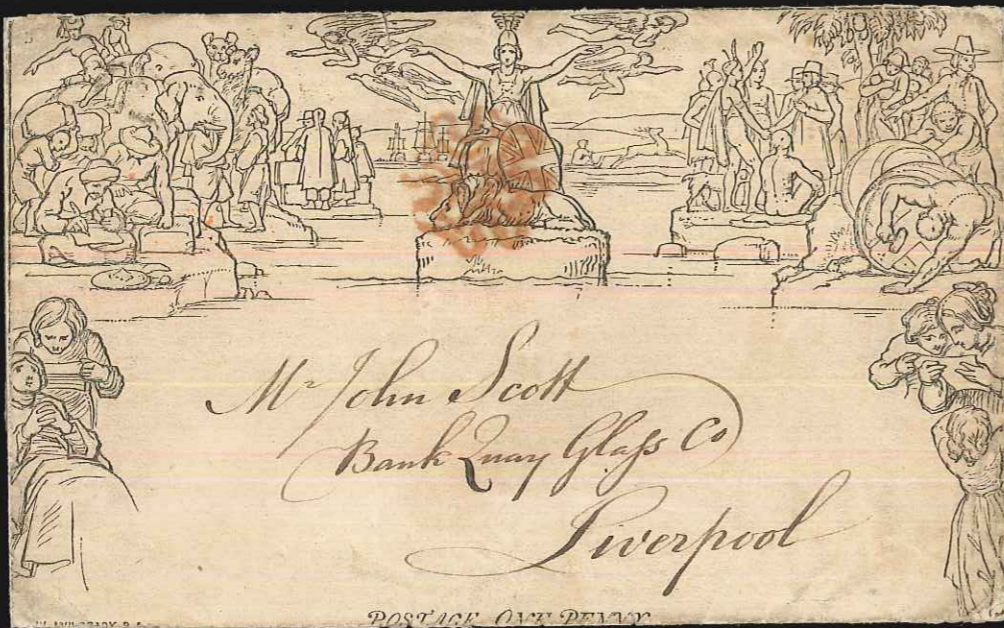 Mr John Scott
Bank Quay Glaſs Co
Liverpool
POSTAGE ONE PENNY